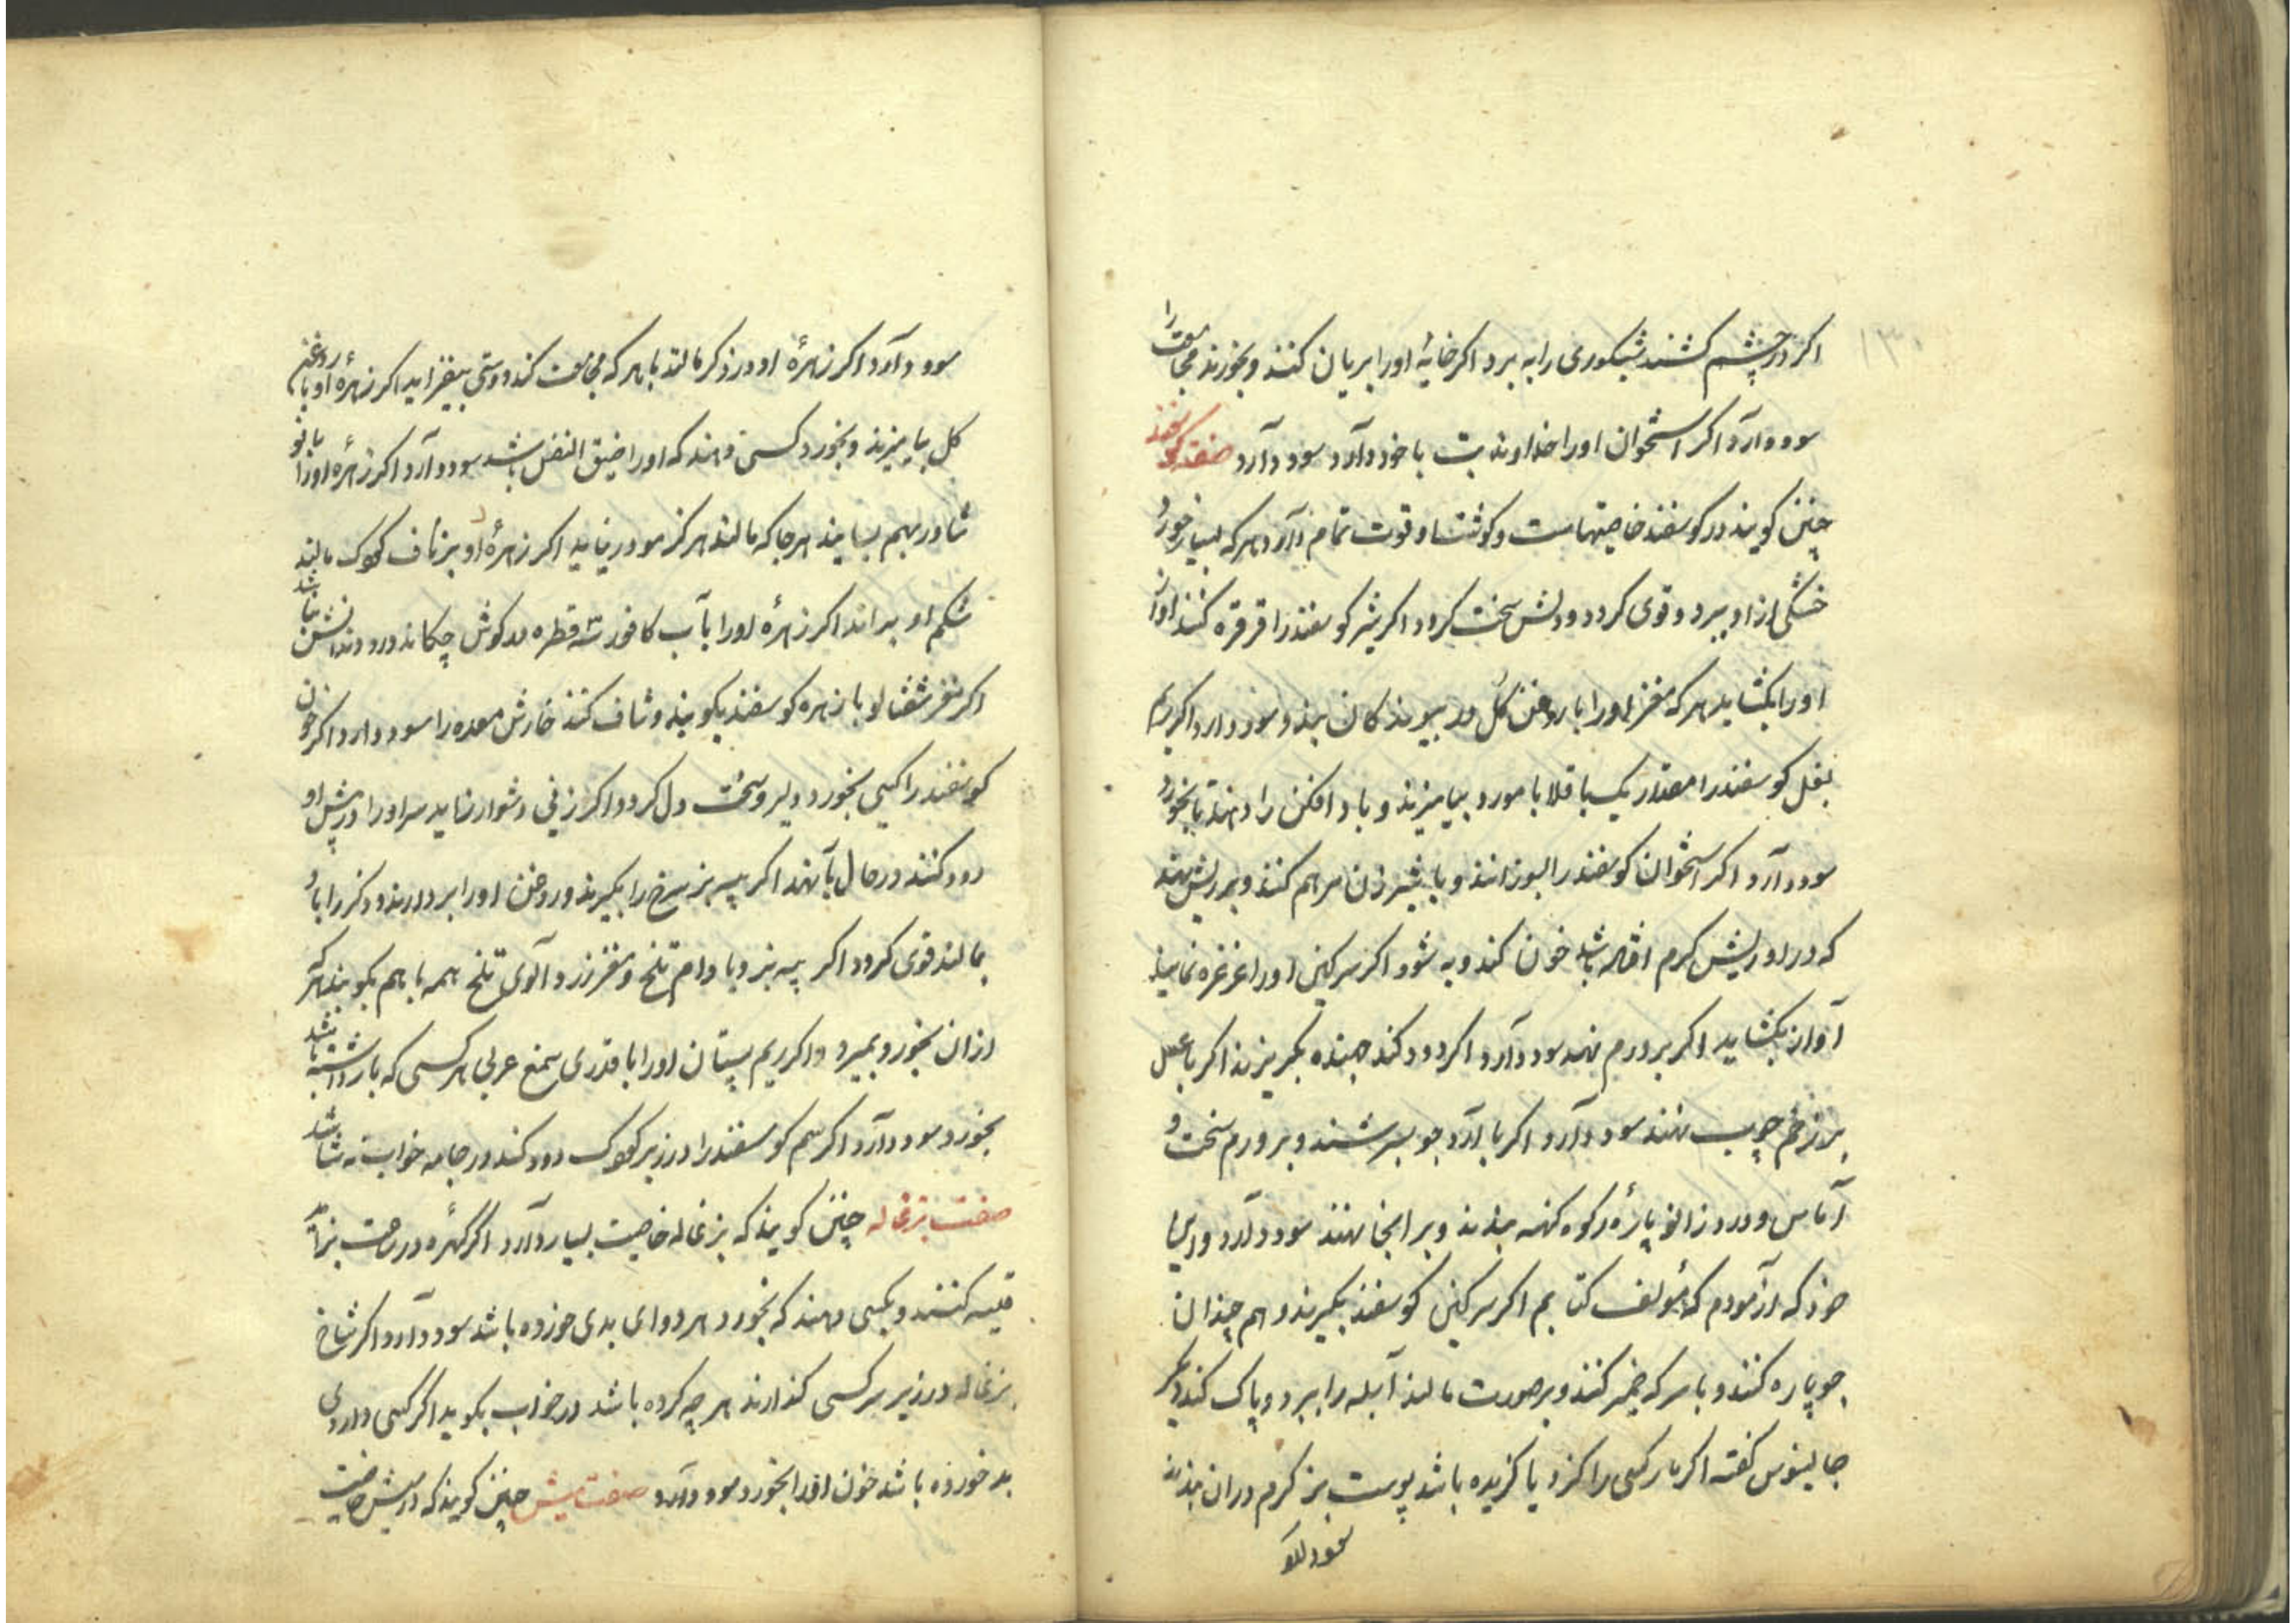 ۱۳۰
اکر در چشم کشند شبکوری را به برد اکر خایهٔ اورا بریان کنند و بخورند مجامعت را
سود دارد اکر استخوان اورا خداوند تب با خود دارد سود دارد صفت کوسفند
چنین کویند در کوسفند خاصیتهاست و کوشت او قوت تمام دارد هر که بسیار خورد
خشکی از او ببرد و قوی کردد و دلش سخت کردد اکر شیر کوسفند را قرقره کنند آواز
اورا بکشاید هر که مغز اورا با روغن کل بیوند سود دارد اکر
بغل کوسفند را مقدار یک باقلا با مورد بیامیزند و باد افکن را دهند تا بخورد
سود دارد اکر استخوان کوسفند را بسوزانند و با شیر زن مرهم کنند و بر ریش نهند
که در او ریش کرم افتاده باشد خون کند و به شود اکر سرکین اورا غرغره نمایند
آواز بکشاید اکر بر ورم نهند سود دارد اکر دود کند جهنده بکریزند اکر با عسل
بر زخم چوب نهند سود دارد اکر با آرد جو بسرشند و بر ورم سخت و
آماس و درد زانو پارهٔ رکوه کهنه ببندند و بر انجا نهند سود دارد و این را
خود که آزمودم که مؤلف کتابم اکر سرکین کوسفند بکیرند و هم چندان
جو پاره کنند و با سرکه خمیر کنند و بر صورت مالند آبله را ببرد و پاک کند دیگر
جالینوس کفته اکر مار کسی را کزد یا کزیده باشد پوست بز کرم در ان بندند
سود دارد اکر زهرهٔ او در ذکر مالند با هر که مجامعت کند دوستی بیفزاید اکر زهرهٔ او با روغن
کل بیامیزند و بخورد کسی دهند که اورا ضیق النفس باشد سود دارد اکر زهره اورا با نو
شادر بهم بسایند هر جا که مالند هرکز مو در نیاید اکر زهرهٔ او بر ناف کودک مالند
شکم او براند اکر زهرهٔ اورا با آب کافور سه قطره در کوش چکاند درد دندانش بنا شد
اکر مغز شفتالو با زهره کوسفند بکویند و شاف کنند خارش معده را سود دارد اکر خون
کوسفند را کسی بخورد دلیر و سخت دل کردد اکر زنی دشوار زاید سر اورا در پیش او
دود کنند در حال بآ نهد اکر پیه بز سرخ را بکیرند و روغن اورا بردارند و ذکر را باو
بمالند قوی کردد اکر پیه بز و بادام تلخ و مغز زرد آلوی تلخ همه با هم بکویند هر که
از ان بخورد بمیرد و اکر ریم پستان اورا با قدری صمغ عربی هر کسی که بار داشته باشد
بخورد سود دارد اکر سم کوسفند را در زیر کودک دود کند در جامه خواب نه شاشد
صفت بزغاله چنین کویند که بزغاله خاصیت بسیار دارد اکر
قیمه کنند و بکسی دهند که بخورد هر دوای بدی خورده باشد سود دارد اکر شاخ
بزغاله در زیر سر کسی کذارند هر چه کرده باشد در خواب بکوید اکر کسی داروی
بد خورده باشد خون اورا بخورد سود دارد صفت میش چنین کویند که در میش خاصیت